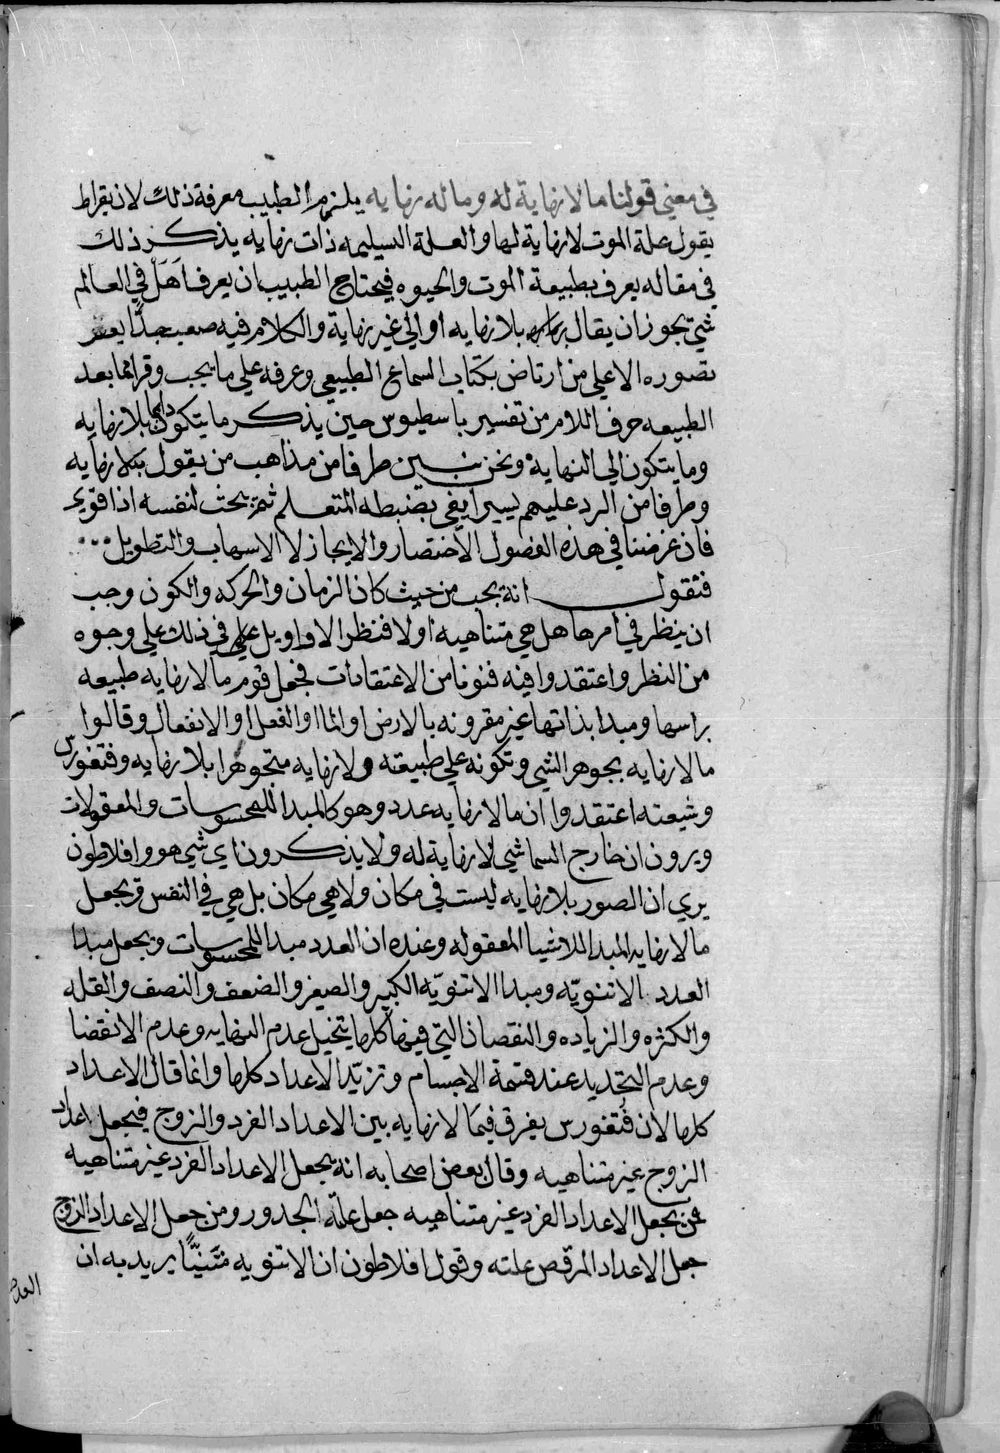 في معني قولنا ما لا نهاية له وما له نهايه يلزم الطبيب معرفة ذلك لان بقراط
يقول علة الموت لا نهاية لها والعلة السليمه ذات نهايه يذكر ذلك
في مقاله يعرف بطبيعة الموت والحيوه فيحتاج الطبيب ان يعرف اهل في العالم
شي يجوز ان يقال بلا نهايه او الي غير نهاية والكلام فيه صعب جدًا يعسر
تصوره الا علي من ارتاض بكتاب السماع الطبيعي وعرفه علي ما يجب وقرا ما بعد
الطبيعه حرف اللام من تفسير ثامسطيوس حين يذكر ما يتكون دايما بلا نهايه
وما يتكون الي النهاية ونحن نبين طرفا من مذاهب من يقول بلا نهايه
وطرفا من الرد عليهم يسيرا يفي بضبطه المتعلم ثم يبحث لنفسه اذا قوي
فان غرضنا في هذه الفصول الاختصار والايجاز لا الاسهاب والتطويل
فنقول انه يجب من حيث كان الزمان والحركه والكون وجب
ان ينظر في امرها هل هي متناهيه او لا فنظر الاوايل في ذلك علي وجوه
من النظر واعتقدوا فيه فنونا من الاعتقادات فجعل قوم ما لا نهايه طبيعه
براسها ومبدا بذاتها غير مقرونه بالارض او الما او الفعل او الانفعال وقالوا
ما لا نهايه بجوهر الشي وتكونه علي طبيعته ولا نهايه متجوهرا بلا نهايه وفثغورس
وشيعته اعتقدوا ان ما لا نهايه عدد وهو كالمبدا للمحسوسات والمعقولات
ويرون ان خارج السما شي لا نهاية له ولا يذكرون اي شي هو وافلاطون
يري ان الصور بلا نهايه ليست في مكان ولا هي مكان بل هي في النفس ويجعل
ما لا نهايه المبدا للاشيا المعقوله وعنده ان العدد مبدا للمحسوسات ويجعل مبدا
العدد الاثنويّه ومبدا الاثنويّه الكبير والصغير والضعف والنصف والقله
والكثره والزياده والنقصان التي فيها كلها يتخيل عدم النهايه وعدم الانقضا
وعدم التحديد عند قسمة الاجسام وتزيّد الاعداد كلها وانما قال الاعداد
كلها لان فثغورس يفرق فيما لا نهايه بين الاعداد الفرد والزوج فيجعل اعداد
الزوج غير متناهيه وقال بعض اصحابه انه يجعل الاعداد الفرد غير متناهيه
فمن يجعل الاعداد الفرد غير متناهيه جعل علّه الجذور ومن جعل الاعداد الزوج
جعل الاعداد علته وقول افلاطون ان الاثنويه يريد به ان
العدد